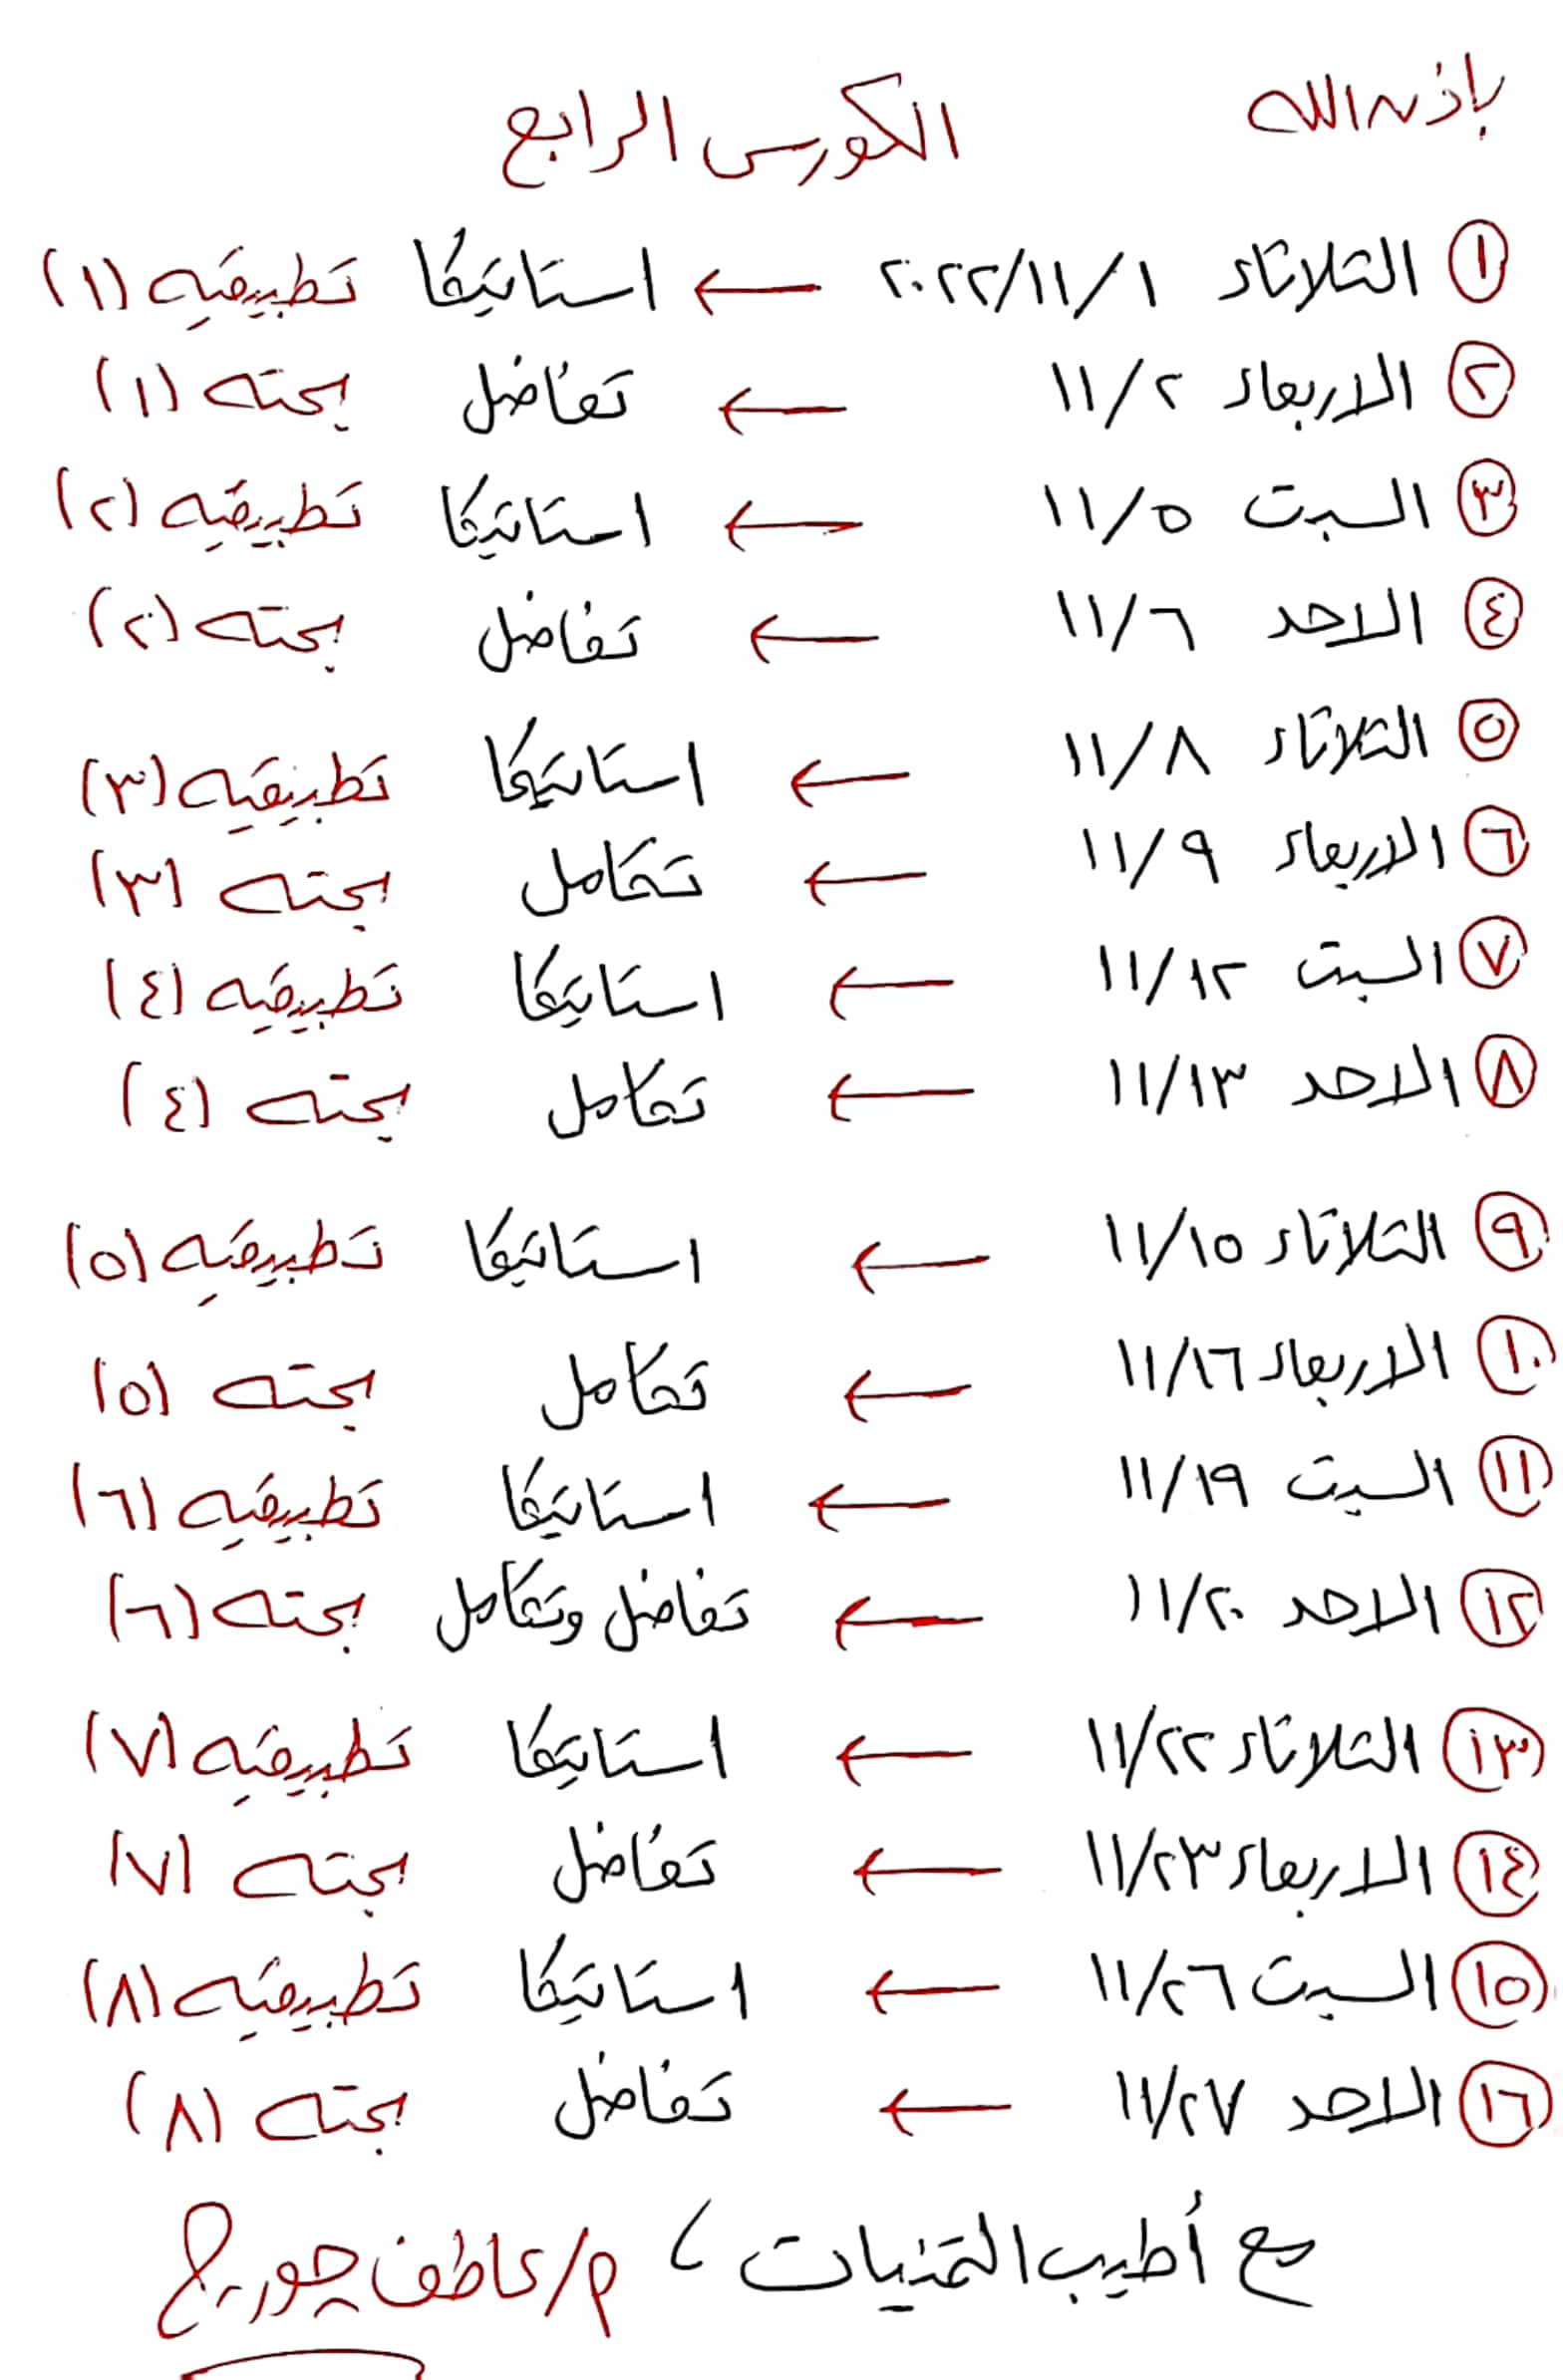 باذن الله
الكورس الرابع
١ الثلاثاء ٢٠٢٢/١١/١ ← استاتيكا تطبيقيه (١)
٢ الاربعاء ١١/٢ ← تفاضل بحته (١)
٣ السبت ١١/٥ ← استاتيكا تطبيقيه (٢)
٤ الاحد ١١/٦ ← تفاضل بحته (٢)
٥ الثلاثاء ١١/٨ ← استاتيكا تطبيقيه (٣)
٦ الاربعاء ١١/٩ ← تكامل بحته (٣)
٧ السبت ١١/١٢ ← استاتيكا تطبيقيه (٤)
٨ الاحد ١١/١٣ ← تكامل بحته (٤)
٩ الثلاثاء ١١/١٥ ← استاتيكا تطبيقيه (٥)
١٠ الاربعاء ١١/١٦ ← تكامل بحته (٥)
١١ السبت ١١/١٩ ← استاتيكا تطبيقيه (٦)
١٢ الاحد ١١/٢٠ ← تفاضل وتكامل بحته (٦)
١٣ الثلاثاء ١١/٢٢ ← استاتيكا تطبيقيه (٧)
١٤ الاربعاء ١١/٢٣ ← تفاضل بحته (٧)
١٥ السبت ١١/٢٦ ← استاتيكا تطبيقيه (٨)
١٦ الاحد ١١/٢٧ ← تفاضل بحته (٨)
مع أطيب التمنيات ، م/عاطف جورج